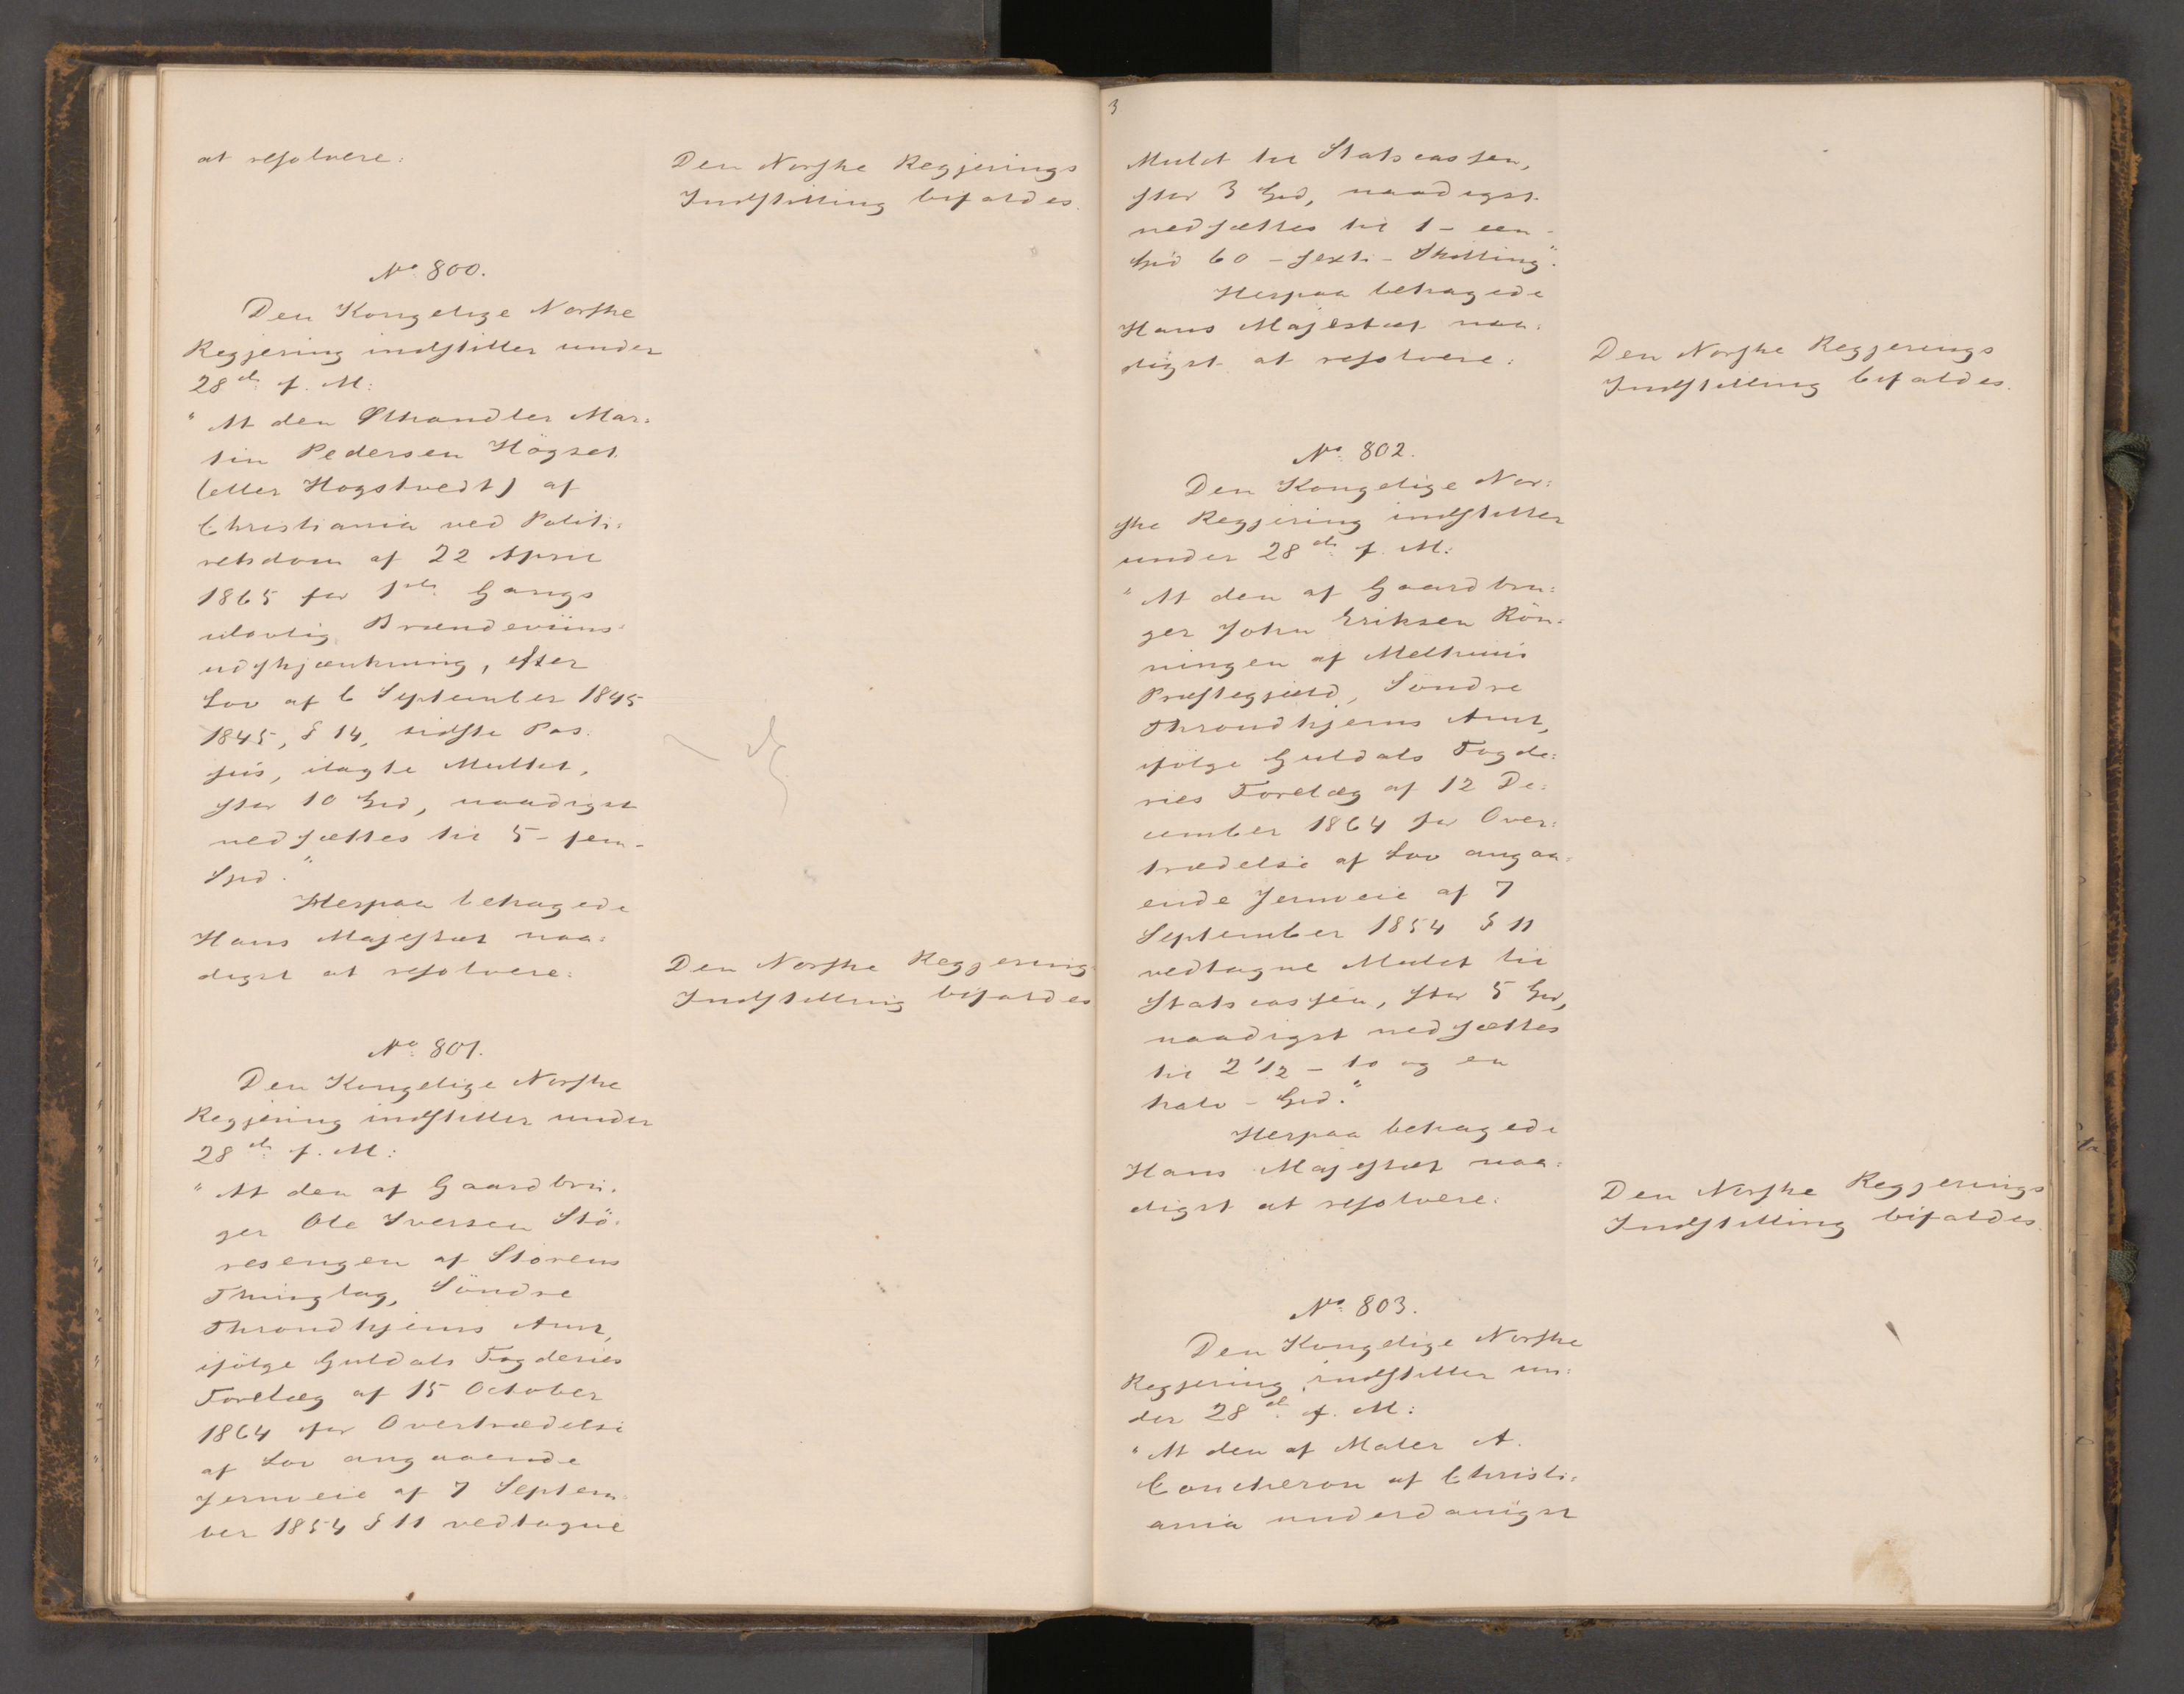 at resolvere:
Den Norske Regjerings
Indstilling bifaldes.
No 800.
Den Kongelige Norske
Regjering indstiller under
28de f. M:
"At den Ølhandler Mar-
tin Pedersen Högset
(eller Hogstvedt) af
Christiania ved Politi-
retsdom af 22 April
1865 for 1ste Gangs
ulovlig Brændeviins-
udskjænkning, efter
Lov af 6 September 1845
1845, § 14, sidste Pas-
sus, ilagte Mulkt,
stor 10 Spd, naadigst
nedsættes til 5 - fem -
Spd."
Herpaa behagede
Hans Majestæt naa-
digst at resolvere:
Den Norske Regjering-
Indstilling bifaldes
No 801.
Den Kongelige Norske
Regjering indstiller under
28de f. M:
"At den af Gaardbru-
ger Ole Iversen Stö-
resengen af Störens
Thinglag, Söndre
Throndhjems Amt,
ifölge Guldals Fogderies
Forelæg af 15 October
1864 for Overtrædelse
af Lov angaaende
Jernveie af 7 Septem-
ber 1854 § 11 vedtagne
3
Mulct til Statscassen,
stor 3 Spd, naadigst
nedsættes til 1 - een -
Spd 60 - sexti - Skilling".
Herpaa behagede
Hans Majestæt naa-
digst at resolvere:
Den Norske Regjerings
Indstilling bifaldes.
No 802.
Den Kongelige Nor-
ske Regjering indstiller
under 28de f. M:
"At den af Gaardbru-
ger John Eriksen Rön-
ningen af Melhuus
Præstegjeld, Söndre
Throndhjems Amt,
ifölge Guldals Fogde-
ries Forelæg af 12 De-
cember 1864 for Over-
trædelse af Lov angaa-
ende Jernveie af 7
September 1854 § 11
vedtagne Mulct til
Statscassen, stor 5 Spd,
naadigst nedsættes
til 2 1/2 - to og en
halv - Spd."
Herpaa behagede
Hans Majestæt naa-
digst at resolvere:
Den Norske Regjerings
Indstilling bifaldes.
No 803.
Den Kongelige Norske
Regjering indstiller un-
der 28de f. M:
"At den af Maler A.
Coucheron af Christi-
ania underdanigst